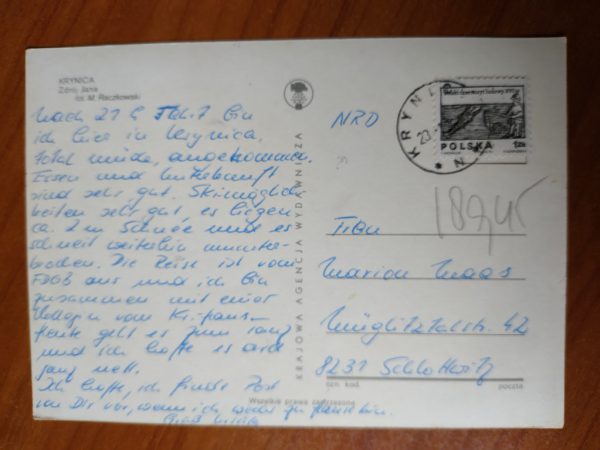 KRYNICA
Zdrój Jana
fot. M. Raczkowski
Nach 21 h Fahrt bin
ich hier in Krynica,
total müde, angekommen.
Essen und Unterkunft
sind sehr gut. Skimöglich-
keiten sehr gut, es liegen
ca. 2 m Schnee und es
schneit weiterhin ununter-
brochen. Die Reise ist vom
FDGB aus und ich bin
zusammen mit einer
Kollegin vom
Heute geht es zum Tanz
und ich hoffe es wird
ganz nett.
Ich hoffe, ich finde Post
von Dir vor, wenn ich wieder zu Hause bin.
Gruß
KRAJOWA AGENCJA WYDAWNICZA
NRD
KRYNICA
POLSKA
189,45
Frau
Marion Maas
Müglitztalstr. 42
8231 Schlottwitz
ozn. kod.
poczta
Wszelkie prawa zastrzeżone